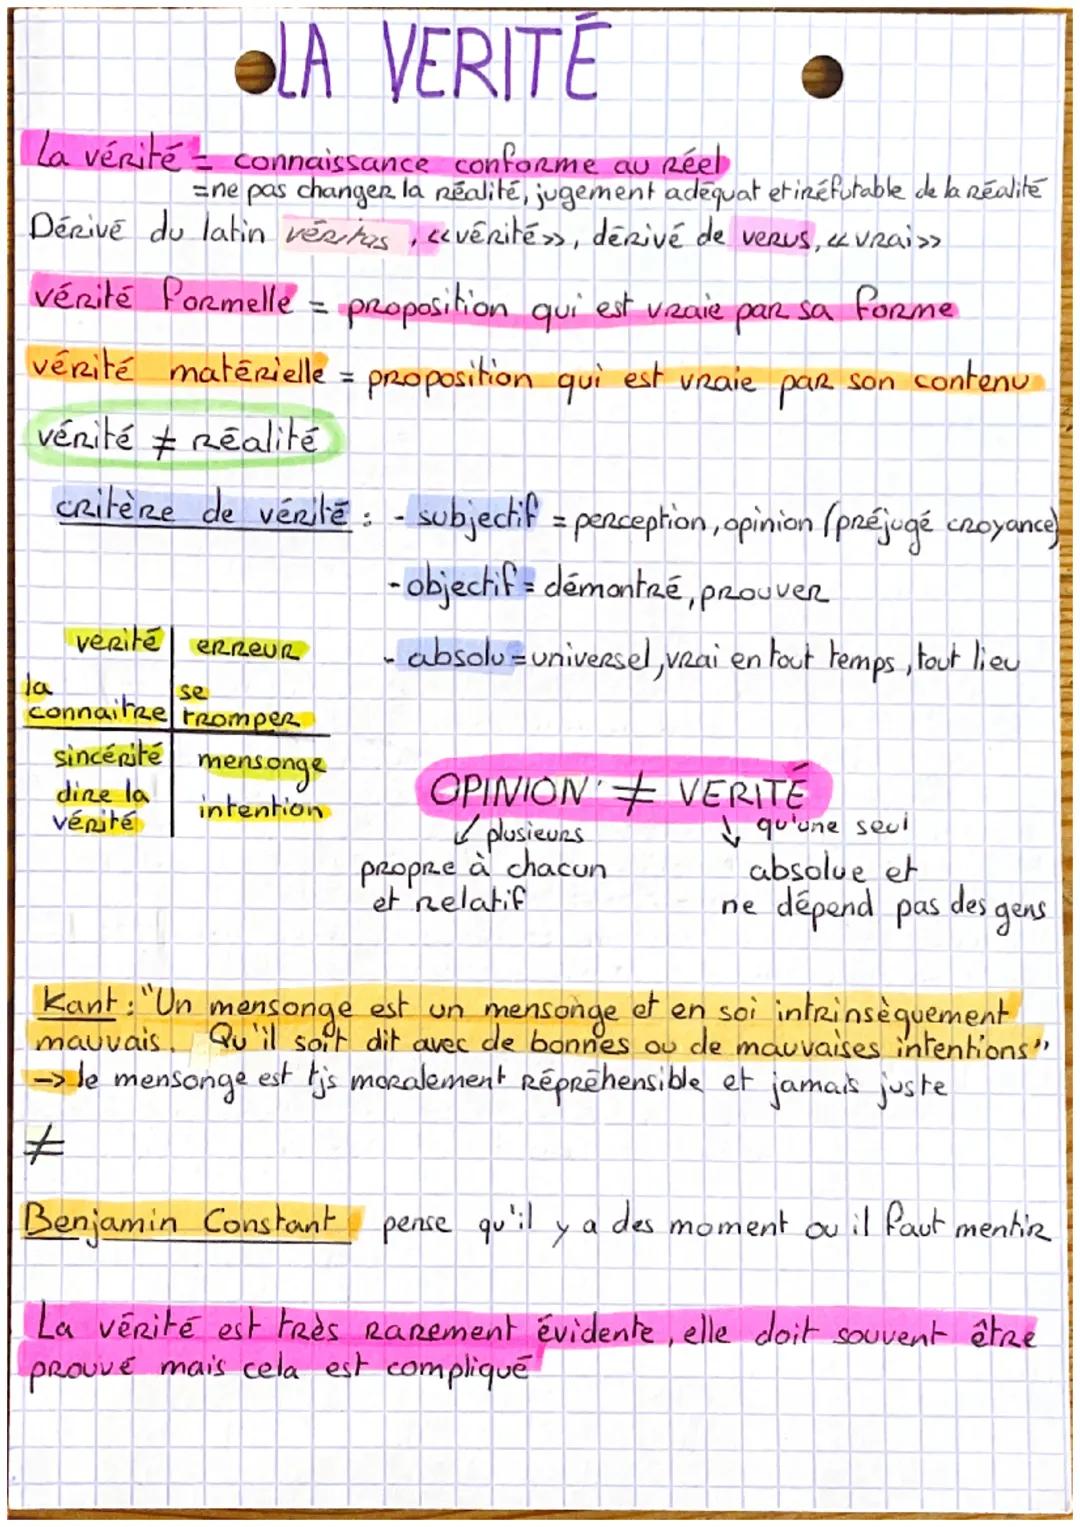 LA VERITÉ
La vérité = connaissance conforme au réel
=ne pas changer la réalité, jugement adéquat et iréfutable de la réalité
Dérivé du latin véritas, «vérité», dérivé de verus, «vrai»
vérité formelle = proposition qui est vraie par sa forme
vérité matérielle = proposition qui est vraie par son contenu
vérité ≠ réalité
critère de vérité : - subjectif = perception, opinion (préjugé croyance)
- objectif = démontré, prouver
- absolu = universel, vrai en tout temps, tout lieu
verité | erreur
la connaitre | se tromper
sincérité | mensonge
dire la vérité | intention
OPINION ≠ VERITÉ
↙ plusieurs
propre à chacun
et relatif
↘ qu'une seul
absolue et
ne dépend pas des gens
Kant : "Un mensonge est un mensonge et en soi intrinsèquement
mauvais. Qu'il soit dit avec de bonnes ou de mauvaises intentions"
-> le mensonge est tjs moralement répréhensible et jamais juste
≠
Benjamin Constant pense qu'il y a des moment ou il faut mentir
La vérité est très rarement évidente, elle doit souvent être
prouvé mais cela est compliqué